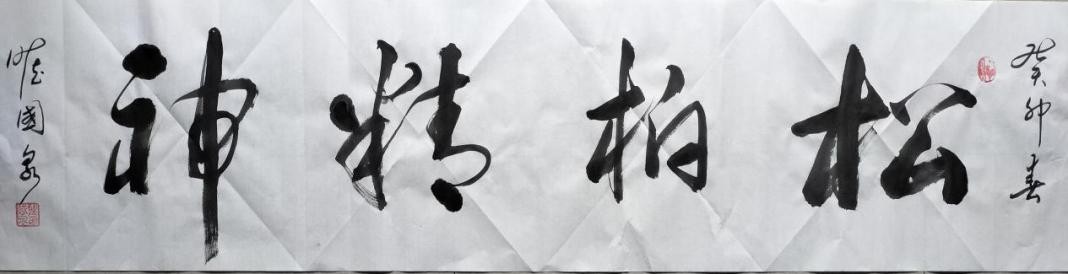 癸卯春
松柏精神
國泉